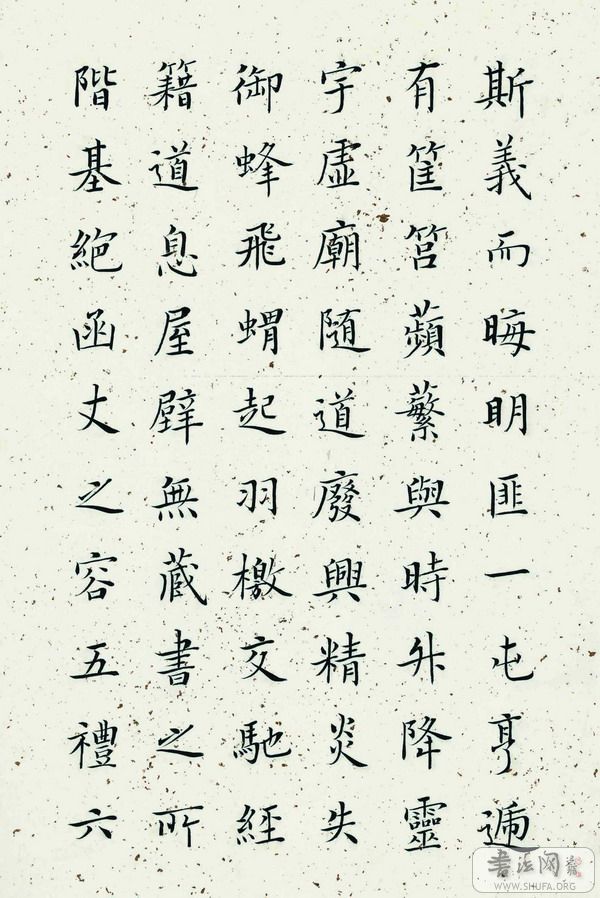 斯義而晦明匪一屯亨遞
有筐筥蘋蘩與時升降靈
宇虛廟隨道廢興精炎失
御蜂飛蝟起羽檄交馳經
籍道息屋壁無藏書之所
階基絕函丈之容五禮六
書法网
WWW.SHUFA.ORG